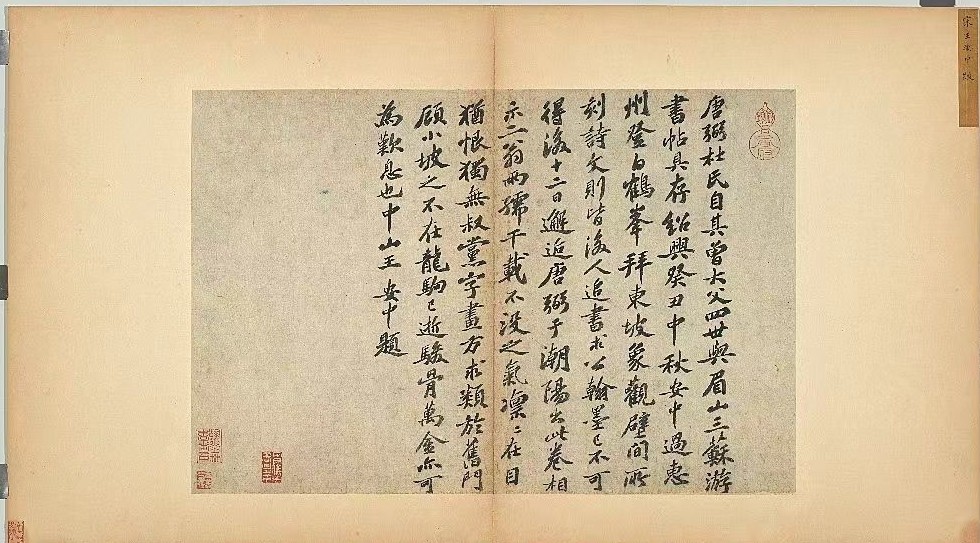 宋王安中跋
唐弼杜氏自其曾大父四世與眉山三蘇游
書帖具存紹興癸丑中秋安中過惠
州登白鶴峯拜東坡象觀壁間所
刻詩文則皆後人追書求公翰墨已不可
得後十二日邂逅唐弼于潮陽出此卷相
示二翁兩孺千載不沒之氣凛〻在目
猶恨獨無叔黨字畫方求類於舊門
顧小坡之不在龍駒已逝駿骨萬金亦可
為歎息也中山王安中題